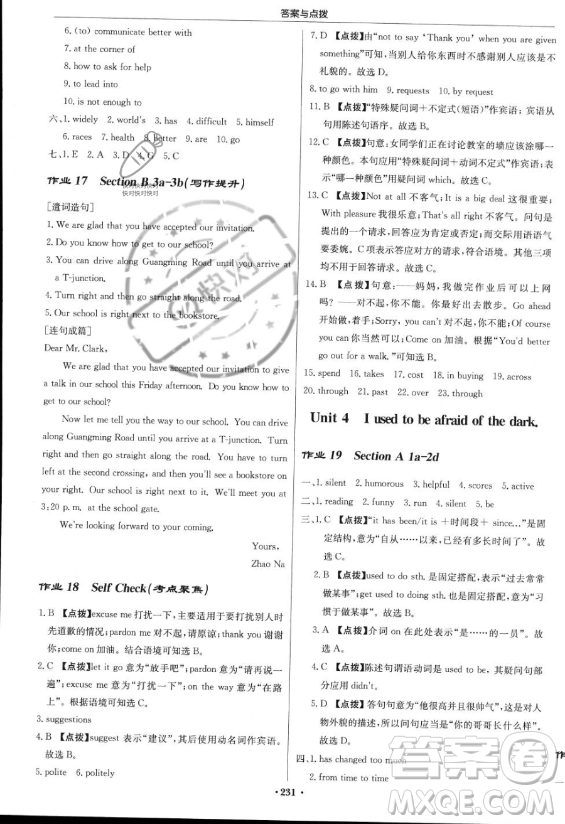 答案与点拨
6. (to) communicate better with
7. at the corner of
8. how to ask for help
9. to lead into
10. is not enough to
六、1. widely 2. world's 3. has 4. difficult 5. himself
6. races 7. health 8. Better 9. are 10. go
七、1. E 2. A 3. D 4. G 5. C
作业 17 Section B 3a-3b(写作提升)
[遣词造句]
1. We are glad that you have accepted our invitation.
2. Do you know how to get to our school?
3. You can drive along Guangming Road until you arrive at
a T-junction.
4. Turn right and then go straight along the road.
5. Our school is right next to the bookstore.
[连句成篇]
Dear Mr. Clark,
We are glad that you have accepted our invitation to give
a talk in our school this Friday afternoon. Do you know how to
get to our school?
Now let me tell you the way to our school. You can drive
along Guangming Road until you arrive at a T-junction. Turn
right and then go straight along the road. When you pass the
lights at the second crossing, and then you'll see a bookstore on
your right. Our school is right next to it. We will meet you at
3:20 p.m. at the school gate.
We're looking forward to your coming.
Yours,
Zhao Na
作业 18 Self Check(考点聚焦)
1. B 【点拨】excuse me 打扰一下,主要适用于要打扰别人时
先道歉的情况;pardon me 对不起,请原谅;thank you 谢谢
你;come on 加油。结合语境可知选 B。
2. C 【点拨】let it go 意为“放手吧”;pardon me 意为“请再说一
遍”;excuse me 意为“打扰一下”;on the way 意为“在路
上”。根据语境可知选 C。
3. suggestions
4. B 【点拨】suggest 表示“建议”,其后使用动名词作宾语。
故选 B。
5. polite 6. politely
7. D 【点拨】由“not to say ‘Thank you’ when you are given
something”可知,当别人给你东西时不说感谢的话是不
礼貌的。故选 D。
8. to go with him 9. requests 10. by request
11. B 【点拨】“特殊疑问词+不定式(短语)”作宾语;宾语从
句用陈述句语序。故选 B。
12. C 【点拨】句意:女同学们正在讨论教室的墙应该涂哪
一种颜色。本句应用“特殊疑问词+动词不定式”,表示
“哪一种颜色”用疑问词 which。故选 C。
13. C 【点拨】Not at all 不客气;It is a big deal 这很重要;
With pleasure 我很乐意;That's all right 不客气。问句是
一个请求,回答应为肯定或否定,而交际用语语气
要委婉。C 项表示答应对方的请求,符合语境。其他三项
均不用于回答请求。故选 C。
14. B 【点拨】句意:——妈妈,我做完作业后可以上网
吗?——对不起,你不能。你最好出去散步。Go ahead
开始,着手;Sorry, you can't 对不起,你不能;Of course
you can 你当然可以;Come on 加油。由“You'd better
go out for a walk.”可知选 B。
15. spend 16. takes 17. cost 18. in buying 19. across
20. through 21. past 22. over 23. through
Unit 4 I used to be afraid of the dark.
作业 19 Section A 1a-2d
一、1. silent 2. humorous 3. helpful 4. scores 5. active
二、1. reading 2. funny 3. run 4. silent 5. be
三、1. C 【点拨】“it has been/it is +时间段+ since...”是固
定结构,意为“自从……以来已经有多久了”。
2. B 【点拨】used to do sth. 是固定搭配,表示“过去常常
做某事”;get used to doing sth. 也是固定搭配,意为“习
惯于做某事”。故选 B。
3. A 【点拨】介词 on 在此处表示“是……的一员”。故选 A。
4. D 【点拨】陈述句谓语动词是 used to be,其疑问句部
分为 did he。故选 D。
5. D 【点拨】答句句意为“他很高并且很帅气”,这是对人
物外貌的描述,所以问句应当是“你的哥哥长什么样”。
故选 D。
四、1. has changed too much
2. from time to time
· 231 ·